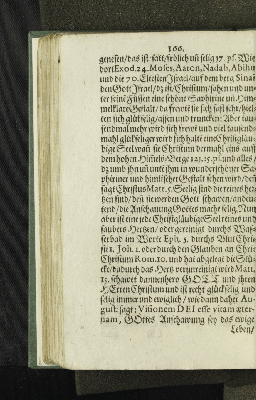 100.
genesen/das ist: satt/frölich uñ selig 17. ps. Wie
dort Exod. 24. Moses, Aaron, Nadab, Abihu
und die 70. Eltesten Israel/auf dem berg Sinai
den Gott Israel/dz ist/Christum/sahen und un-
ter seine Füssen eine schöne Saphirine uñ Him-
melklare Gestalt/da freut sie sich/hiel-
ten sich glückselig/assen und truncken: Aber tau-
sendmal mehr wird sich freut und viel tausend-
mahl glückseliger wird sich halte eine Christglau-
bige Seel wañ sie Christum dermahl eins auff
dem hohen Himels/Berge und alles/
dz umb ihn uñ unter ihm in wunderschöner Sa-
phiriner und himlischer Gestalt sehen wird/deñ
sagt Christus Matt. 5. Seelig sind die reines her-
tzen sind/deñ sie werden Gott schawen/andeu-
tend/die Anschawung Gottes mache selig. Nun
aber ist eine jede Christglaubige Seel eines rein
saubers Hertzen/oder gereinigt durch Was-
serbad im Worte Eph. 5. durch Blut Christi
1. Joh. 1. oder durch den Glauben an Christ
Christum Rom. 10. und hat abgelegt die Sün-
de/dadurch das Hertz verunreiniget wird Matt.
15. schawet dannenhero GOTT und ihren
HErren Christum und ist recht glückselig und
selig immer und ewiglich/wie dann daher Au-
gust: sagt: Visionem DEI esse vitam æter-
nam, GOttes Anschawung sey das ewige
Leben/